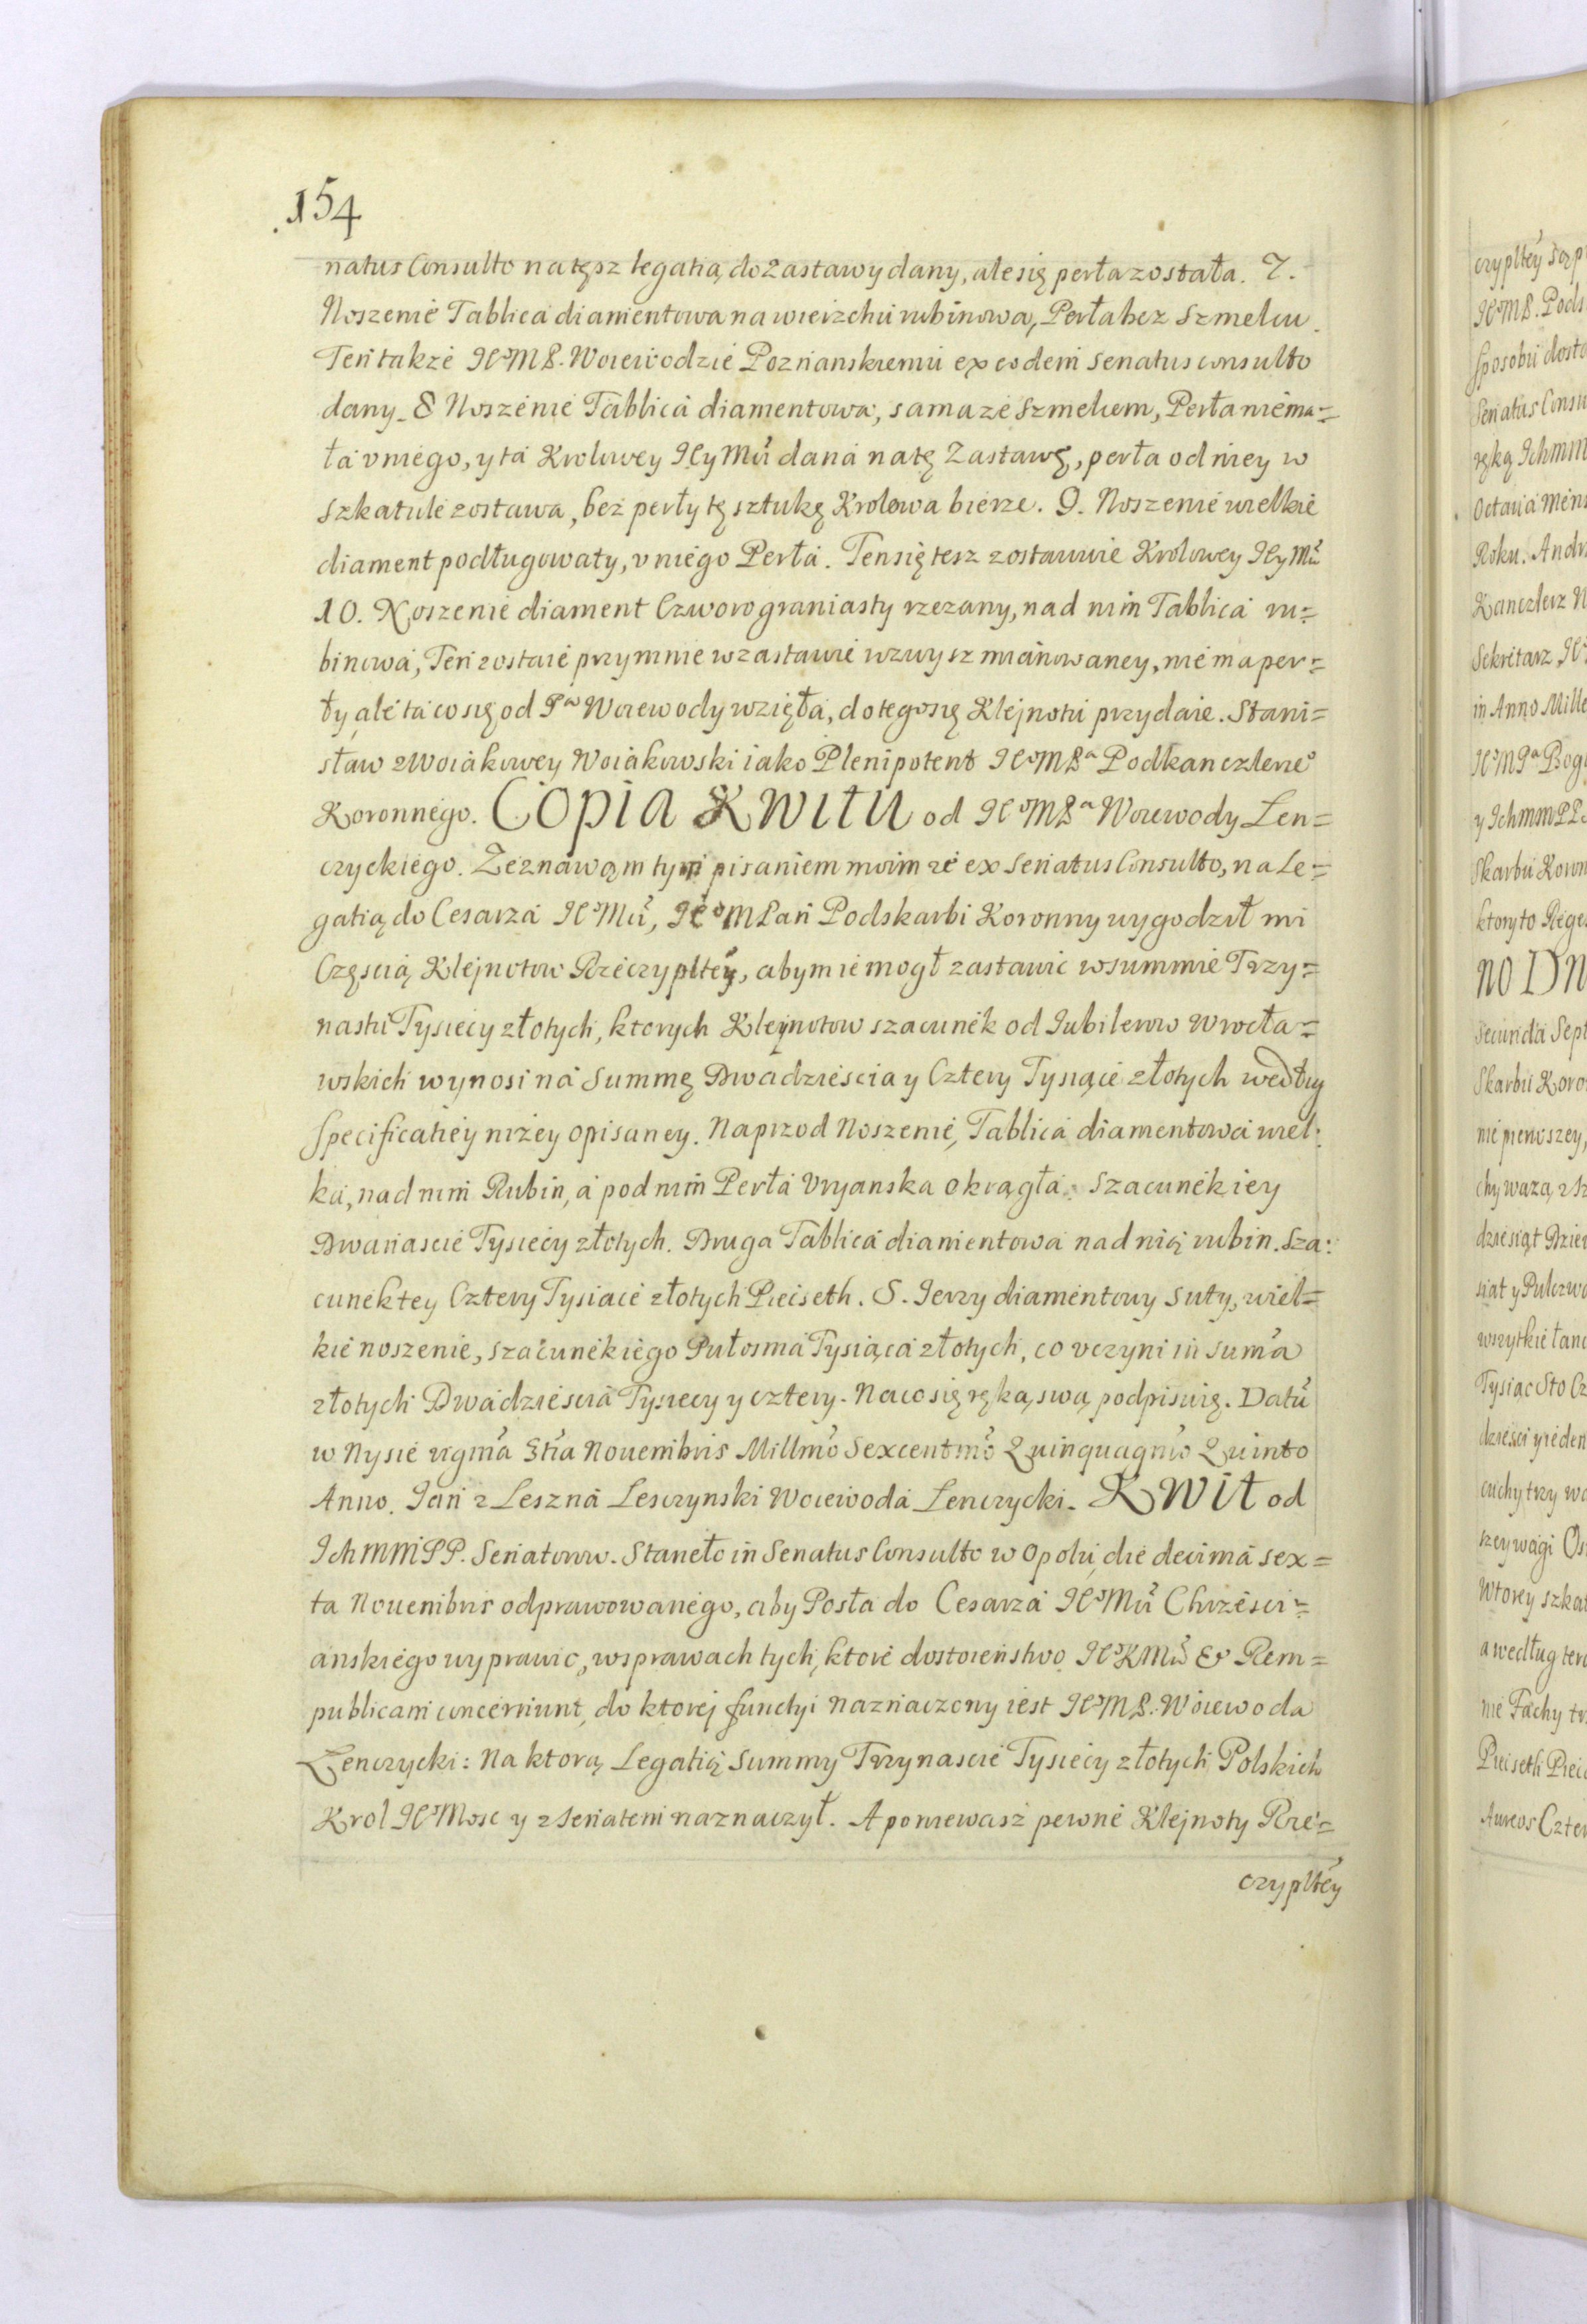 154
natus Consulto na tęsz legatią do Zastawy dany, ale się perła została. 7.
Noszenie Tablica diamentowa na wierzchu rubinowa, Perła bez Szmelcu.
Ten także JeoMP. Woiewodzie Poznanskiemu ex eodem Senatus consulto
dany. 8 Noszenie Tablica diamentowa, sama ze Szmelcem, Perła niema=
ła v niego, y ta Krolowey JeyMci dana na tę Zastawę, perła od niey w
szkatule zostawa, bez perły tę sztukę Krolowa bierze. 9. Noszenie wielkie
diament podługowaty, v niego Perła. Ten się tesz zostawuie Krolowey JeyMci
10. Noszenie diament Czworograniasty rzezany, nad nim Tablica ru=
binowa, Ten zostaie przy mnie w zastawie wzwysz mianowaney, nie ma per=
ły, ale ta co się od Pa Woiewody wzięła, do tego się Klejnotu przydaie. Stani=
sław z Woiakowey Woiakowski iako Plenipotent JeoMPa Podkanczlerzeo
Koronnego. Copia Kwitu od JeoMPa Woiewody Len=
czyckiego. Zeznawąm tym pisaniem moim że ex Senatus Consulto, na Le=
gatią do Cesarza JeoMci, JeoMPan Podskarbi Koronny wygodził mi
Częscią Klejnotow Rzeczyplteÿ, abym ie mogł zastawic w summie Trzy=
nastu Tysiecy złotych, ktorych Kleynotow szacunek od Jubilerow Wrocła=
wskich wynosi na Summę Dwadziescia y Cztery Tysiące złotych według
specificatiey niżey opisaney. Naprzod Noszenie, Tablica diamentowa wiel:
ka, nad nim Rubin, a pod nim Perła Vryanska okrągła. Szacunek iey
Dwanascie Tysiecy złotych. Druga Tablica diamentowa nad nią rubin. Sza:
cunek tey Cztery Tysiace złotych Piecseth. S. Jerzy diamentowy suty, wiel=
kie noszenie, szacunek iego Pułosma Tysiąca złotych, co vczyni in suma
złotych Dwadziescia Tysiecy y cztery. Na co się ręką swą podpisuię. Datu
w Nysie vigma 3tia Nouembris Millmo Sexcentmo Quinquagmo Quinto
Anno. Jan z Leszna Lesczynski Woiewoda Lenczycki. Kwit od
IchMMPP. Senatorow. Staneło in Senatus Consulto w Opolu, die decima sex=
ta Nouembris odprawowanego, aby Posła do Cesarza JeoMci Chrzesci=
anskiego wyprawic, w sprawach tych, ktore dostoienstwo JeoKMci & Rem=
publicam concernunt, do ktorej functyi naznaczony iest JeoMP. Woiewoda
Lenczycki: Na ktorą Legatią Summy Trzynascie Tysiecy złotych Polskich
Krol JeoMosc y z Senatem naznaczył. A poniewasz pewne Klejnoty Rze=
czyplteÿ